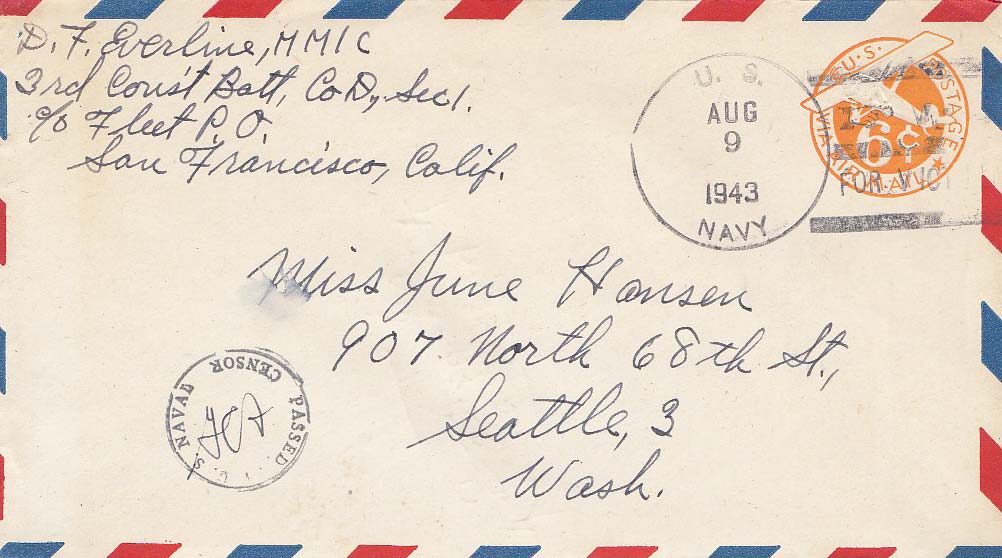 D. F. Everline, MM1C
3rd Const Batt, Co D, Sec 1.
c/o Fleet P.O.
San Francisco, Calif.
U. S.
AUG
9
1943
NAVY
U.S. POSTAGE
6¢
VIA AIR MAIL
FOR VIC
Miss June Hansen
907 North 68th St.,
Seattle, 3
Wash.
PASSED
CENSOR
U. S. NAVAL